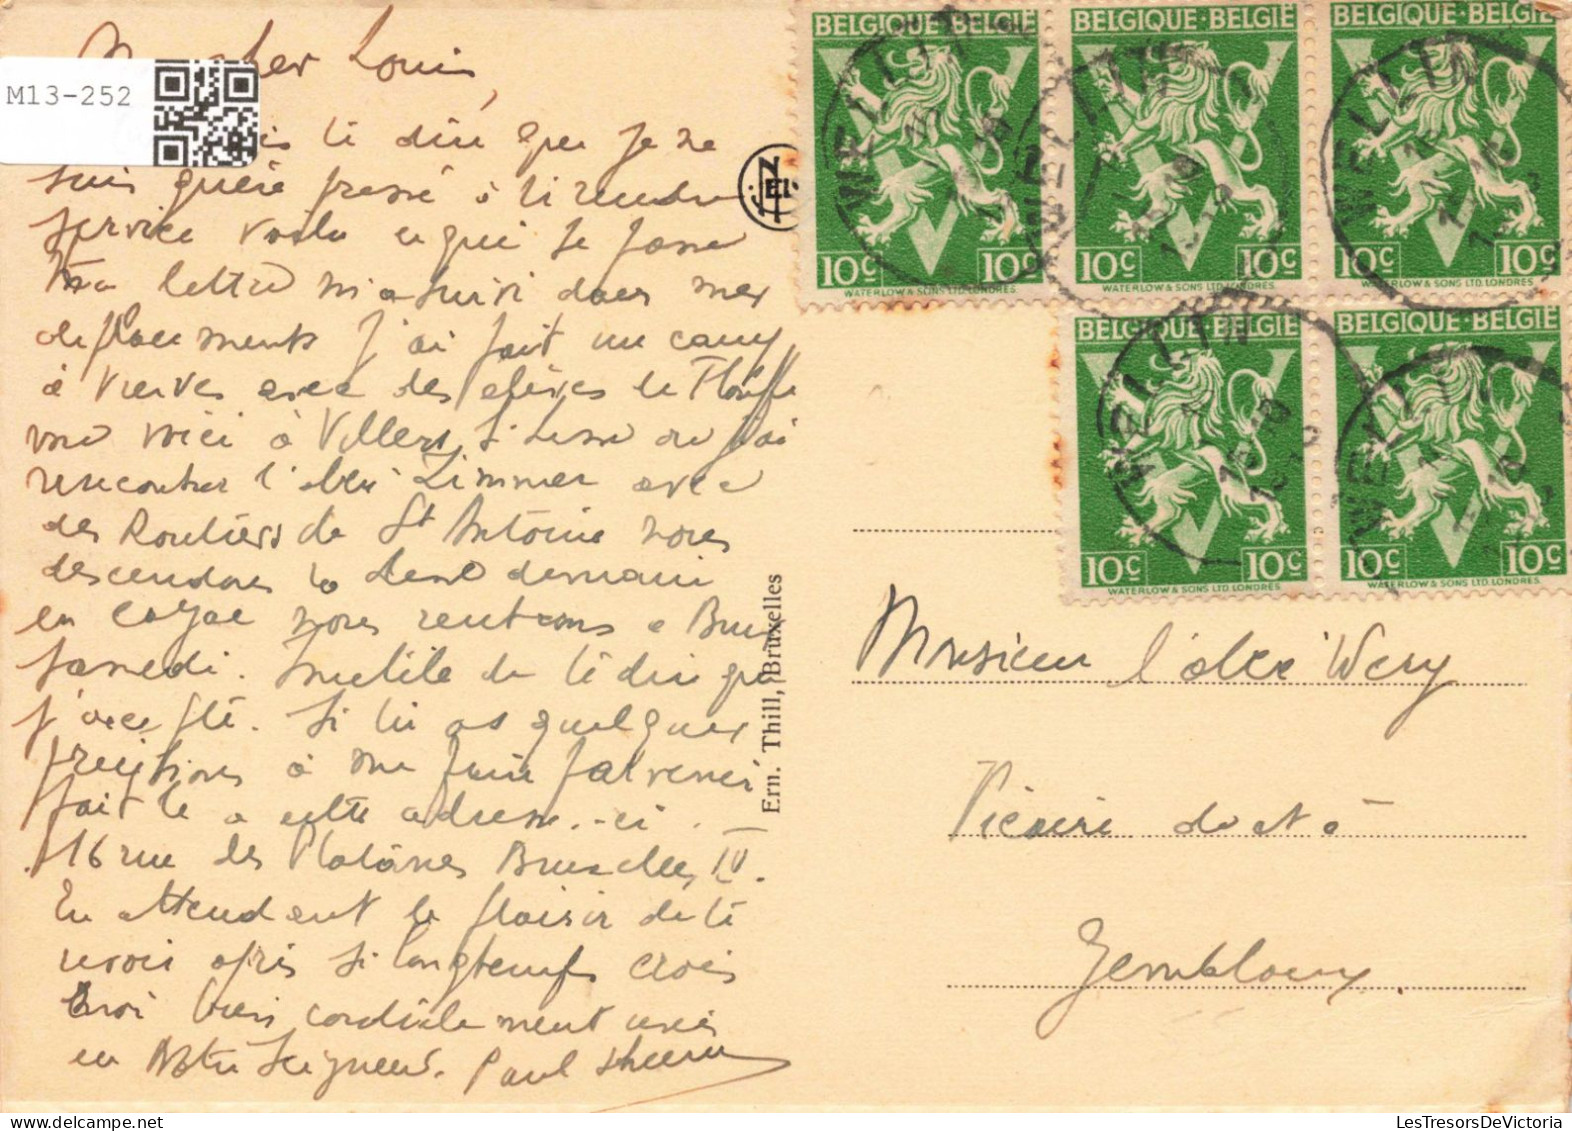 Mon cher Louis,
M13-252
dois te dire que je ne
suis guère pressé à te rendre
service voilà ce qui se passe
Ma lettre m'a suivi dans mes
déplacements J'ai fait un camp
à Vierves avec des élèves de
me voici à Villers s/ Lesse où j'ai
rencontré l'abbé Zimmer avec
des Routiers de St Antoine nous
descendons la Lesse demain
en Cayac nous rentrons à Brux
samedi. Inutile de te dire que
j'accepte. Si tu as quelques
précisions à me faire parvenir
fait le a cette adresse-ci.
116 rue des Platanes Bruxelles IV.
En attendant le plaisir de te
revoir après si longtemps crois
moi bien cordialement unis
en Notre Seigneur. Paul
Ern. Thill, Bruxelles
NELS
BELGIQUE·BELGIË
10c 10c
WATERLOW & SONS LTD. LONDRES
BELGIQUE·BELGIË
10c 10c
WATERLOW & SONS LTD. LONDRES
BELGIQUE·BELGIË
10c 10c
WATERLOW & SONS LTD. LONDRES
BELGIQUE·BELGIË
10c 10c
WATERLOW & SONS LTD. LONDRES
BELGIQUE·BELGIË
10c 10c
WATERLOW & SONS LTD. LONDRES
WELLIN
WELLIN
WELLIN
WELLIN
WELLIN
Monsieur l'abbé Wéry
Vicaire
Gembloux.
LesTresorsDeVictoria